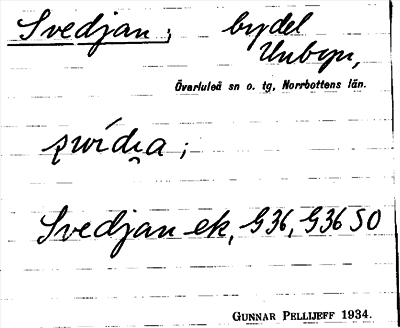 Svedjan; bydel
Unbyn,
Överluleå sn o. tg, Norrbottens län.
Svedjan ek, G36, G36 SO
GUNNAR PELLIJEFF 1934.